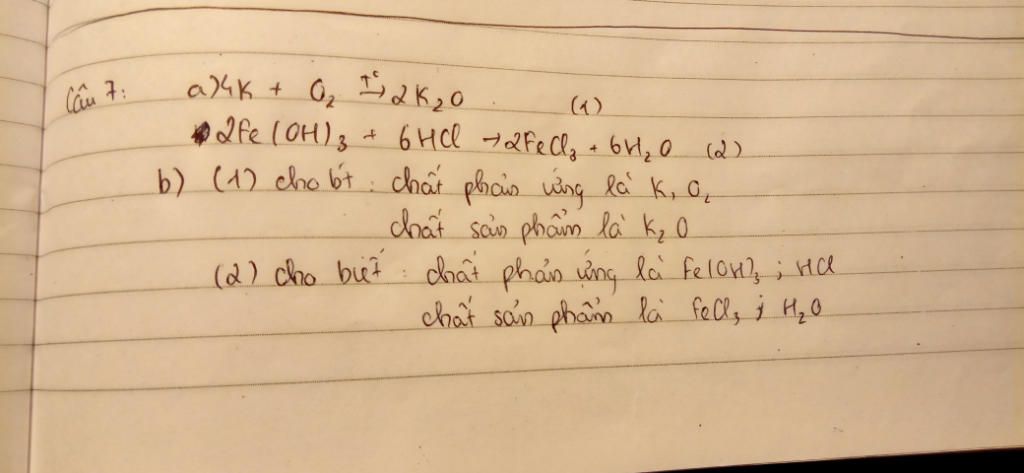 Câu 7: a) 4K + O₂ t°→ 2K₂O (1)
2Fe(OH)₃ + 6HCl → 2FeCl₃ + 6H₂O (2)
b) (1) cho bt : chất phản ứng là K, O₂
chất sản phẩm là K₂O
(2) cho biết : chất phản ứng là Fe(OH)₃ ; HCl
chất sản phẩm là FeCl₃ ; H₂O